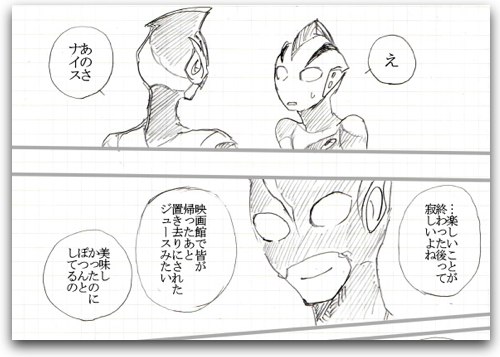 え
あのさ
ナイス
…楽しいことが
終わった後って
寂しいよね
映画館で皆が
帰ったあと
置き去りにされた
ジュースみたい
美味し
かったのに
ぽつんと
してるの